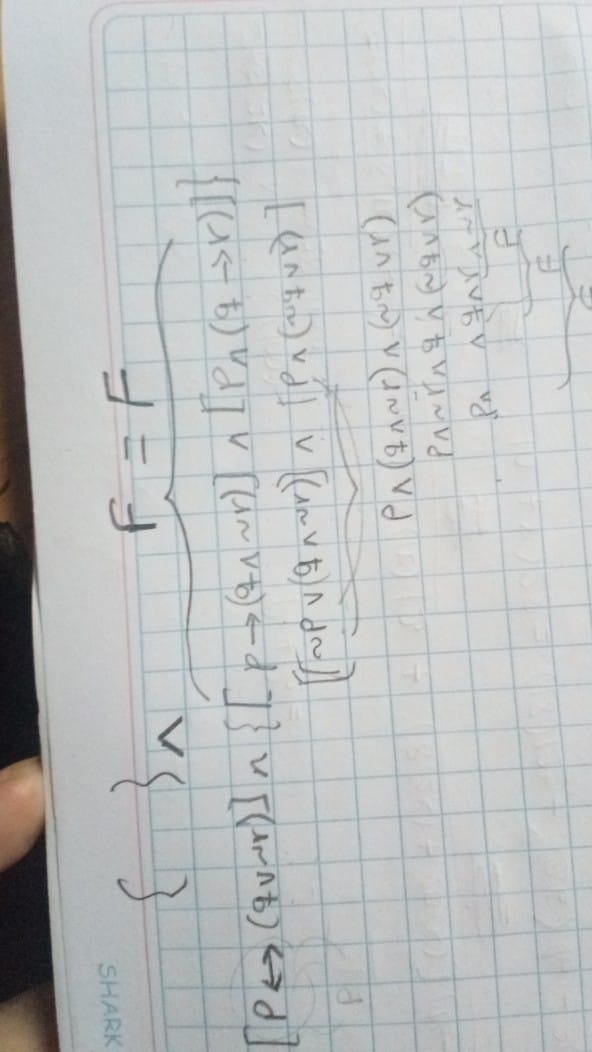 SHARK
{ } ∧ F = F
[P ↔ (q ∨ ~r)] ∧ {[p → (q ∧ ~r)] ∧ [P ∧ (q → r)]}
[[~p ∨ (q ∧ ~r)] ∧ [P ∧ (~q ∨ r)]
P ∧ (q ∧ ~r) ∧ (~q ∨ r)
P ∧ ~r ∧ q ∧ (~q ∨ r)
P ∧ ∧ q ∧ r ∧ ~r
F
F